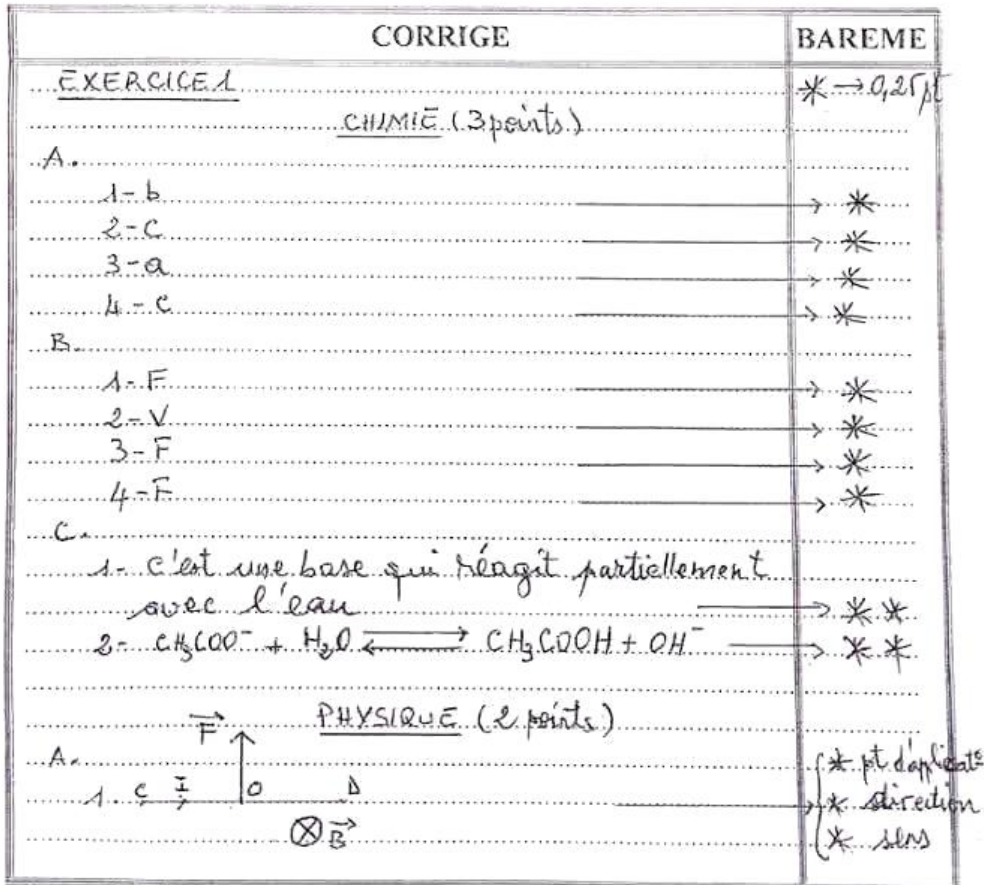 CORRIGE BAREME
EXERCICE 1 * → 0,25 pt
CHIMIE (3 points)
A.
1- b → *
2- C → *
3- a → *
4- c → *
B.
1- F → *
2- V → *
3- F → *
4- F → *
C.
1- c'est une base qui réagit partiellement
avec l'eau → * *
2- CH₃COO⁻ + H₂O ⇌ CH₃COOH + OH⁻ → * *
PHYSIQUE (2 points)
F⃗
A. * pt d'applicatᵒ
1. C I O D → * direction
⊗ B⃗ * sens